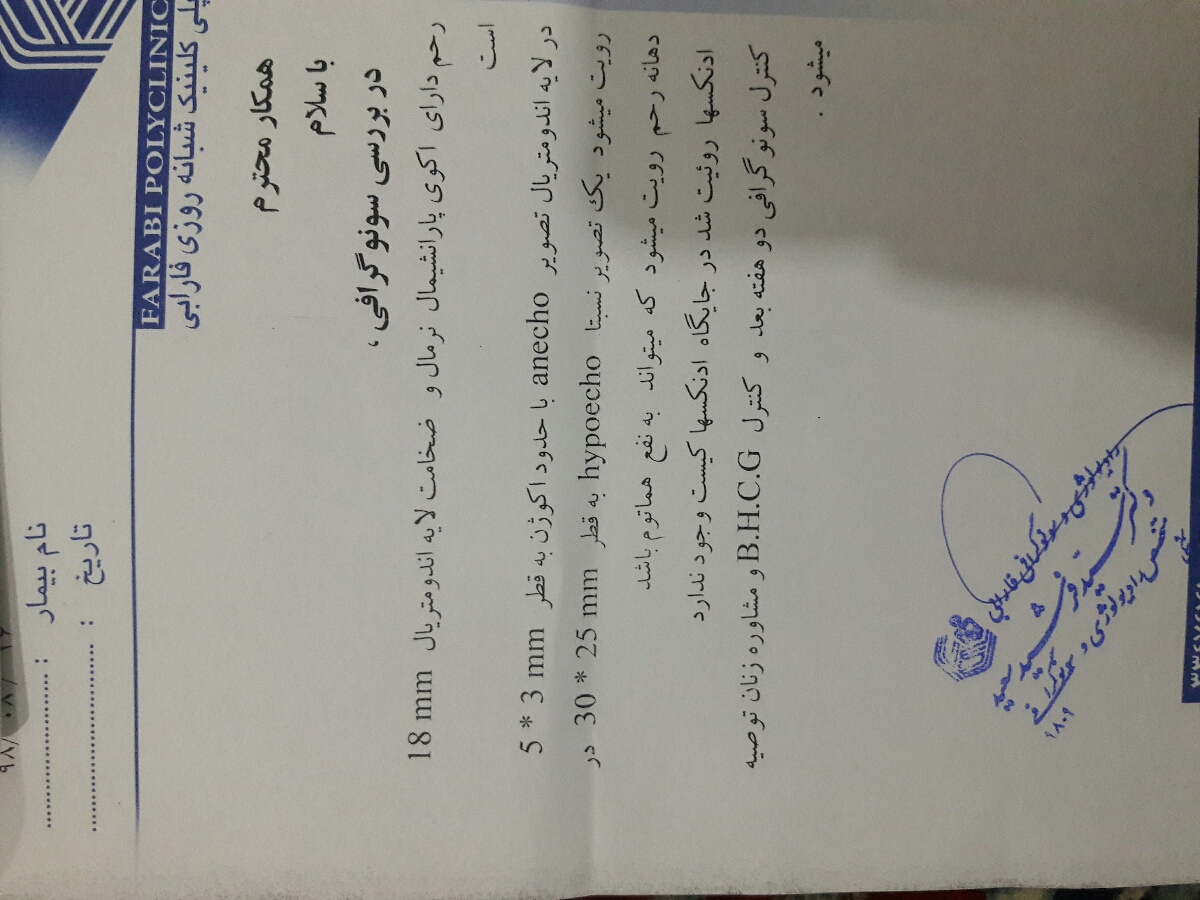 FARABI POLYCLINIC
پلی کلینیک شبانه روزی فارابی
نام بیمار : ........................
تاریخ : ........................
همکار محترم
با سلام
در بررسی سونوگرافی ،
رحم دارای اکوی پارانشیمال نرمال و ضخامت لایه اندومتریال 18 mm
است
در لایه اندومتریال تصویر anecho با حدود اکوژن به قطر 5 * 3 mm
رویت میشود یک تصویر نسبتا hypoecho به قطر 30 * 25 mm در
دهانه رحم رویت میشود که میتواند به نفع هماتوم باشد
ادنکسها روئیت شد در جایگاه ادنکسها کیست وجود ندارد
کنترل سونوگرافی دو هفته بعد و کنترل B.H.C.G و مشاوره زنان توصیه
میشود .
رادیولوژی و سونوگرافی فارابی
دکتر
متخصص رادیولوژی و سونوگرافی